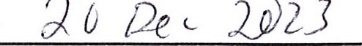 20 Dec 2023